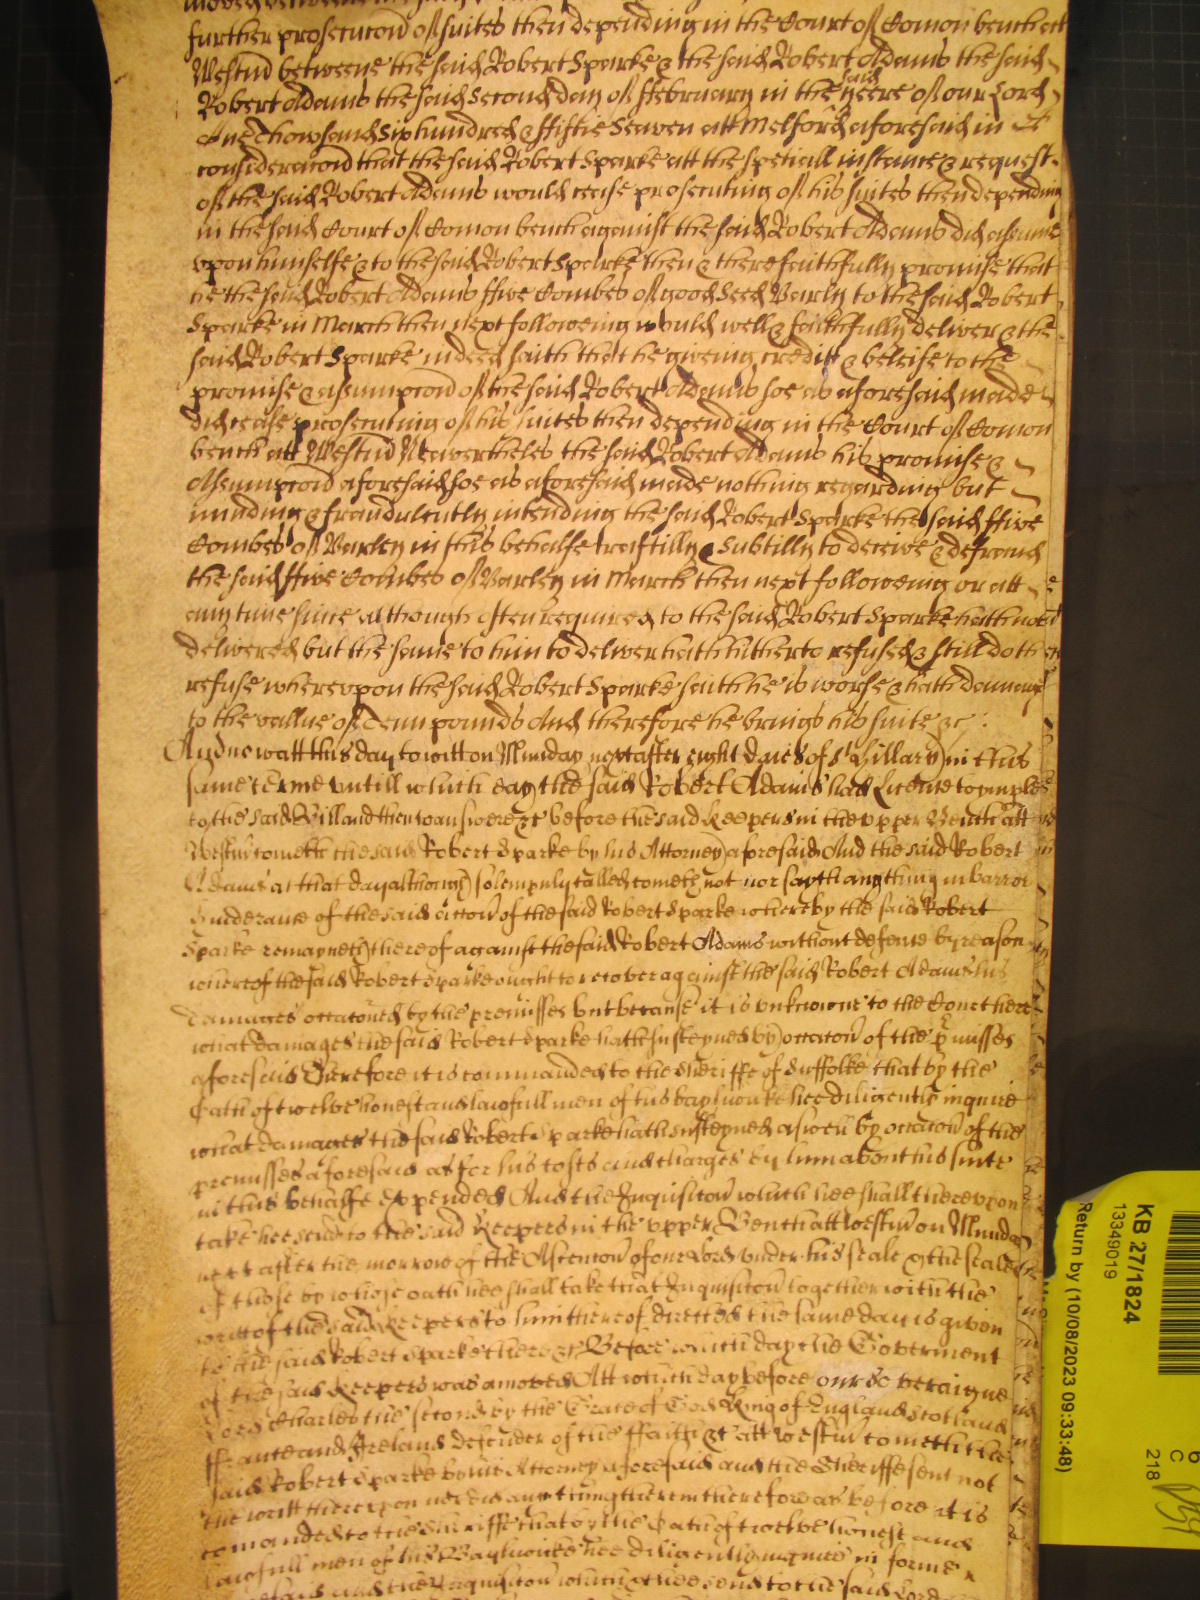 moved betweene
further prosecucon of suites then depending in the Court of Comon bench att
Westm̄ betweene the said Robert Sparke & the said Robert Adams the said
Robert Adams the said Second day of ffebruary in the said yeere of our Lord
One Thowsand Six hundred & ffiftie Seaven att Melford aforesaid in
consideracon that the said Robert Sparke att the speciall instance & request
of the said Robert Adams would cease prosecuting of his suites then depending
in the said Court of Comon bench against the said Robert Adams did assume
vpon himselfe & to the said Robert Sparke then & there faithfully promise that
he the said Robert Adams ffive Combes of good Seed Barly to the said Robert
Sparke in March then next following would well & faithfully deliver & the
said Robert Sparke indeed saith that he giveing credit & beleife to the
promise & assumpcon of the said Robert Adams soe as aforesaid made
did cease prosecuting of his suites then depending in the Court of Comon
bench att Westm̄ Neavertheles the said Robert Adams his promise &
Assumpcon aforesaid soe as aforesaid made nothing regarding but
minding & fraudulently intending the said Robert Sparke the said ffive
Combes of Barley in this behalfe craftilly & subtilly to deceive & defraud
the said ffive Combes of Barley in March then next following or att
any time since although often required to the said Robert Sparke hath not
delivered but the same to him to deliver hath hitherto refused & still doth
refuse wherevpon the said Robert Sparke saith he is worse & hath damage
to the vallue of Tenn pounds And therefore he brings his suite &c:
And now att this day to witt on Munday next after eight daies of St Hillary in this
same terme vntill which day the said Robert Adams had licence to imple
to the said Bill and then to answere &c before the said Keepers in the vpper Bench att
Westm̄ cometh the said Robert Sparke by his Attorney aforesaid And the said Robert
Adams at that day although solempnly called cometh not nor sayth any thing in barr or
hinderance of the said accon of the said Robert Sparke whereby the said Robert
Sparke remayneth thereof against the said Robert Adams without defence by reason
whereof the said Robert Sparke ought to recover against the said Robert Adams his
damages occaconed by the premisses but because it is vnknowne to the Court here
what damages the said Robert Sparke hath susteyned by occacon of the p̄misses
aforesaid Therefore it is commanded to the Sheriffe of Suffolke that by the
Oath of twelve honest and lawfull men of his baylywicke hee diligently inquire
what damages the said Robert Sparke hath susteyned aswell by occacon of the
premisses aforesaid as for his costs and charges by him about his suite
in this behalfe expended And the Inquisicon which hee shall therevpon
take hee send to the said Keepers in the vpper Bench att Westm̄ on Munday
next after the morrow of the Ascencon of our Lord vnder his seale & the seales
of those by whose oath hee shall take that Inquisicon together with the
writt of the said Keepers to him thereof directed the same day is given
to the said Robert Sparke there &c Before which day the Goverment
of the said Keepers was amoved Att which day before our So veraigne
Lord Charles the second by the Grace of God King of England Scotland
ffrance and Ireland defender of the ffaith &c att Westm̄ cometh the
said Robert Sparke by his Attorney aforesaid and the Sheriffe sent not
the writt therevpon nor did any thing therein therefore as before it is
comanded to the Sheriffe that by the Oath of twelve honest and
lawfull men of his Baylywicke hee diligently inquire in forme
aforesaid and the Inquisicon which &c hee send to the said Lord
KB 27/1824
13349019
Return by (10/08/2023 09:33:48)
C
218